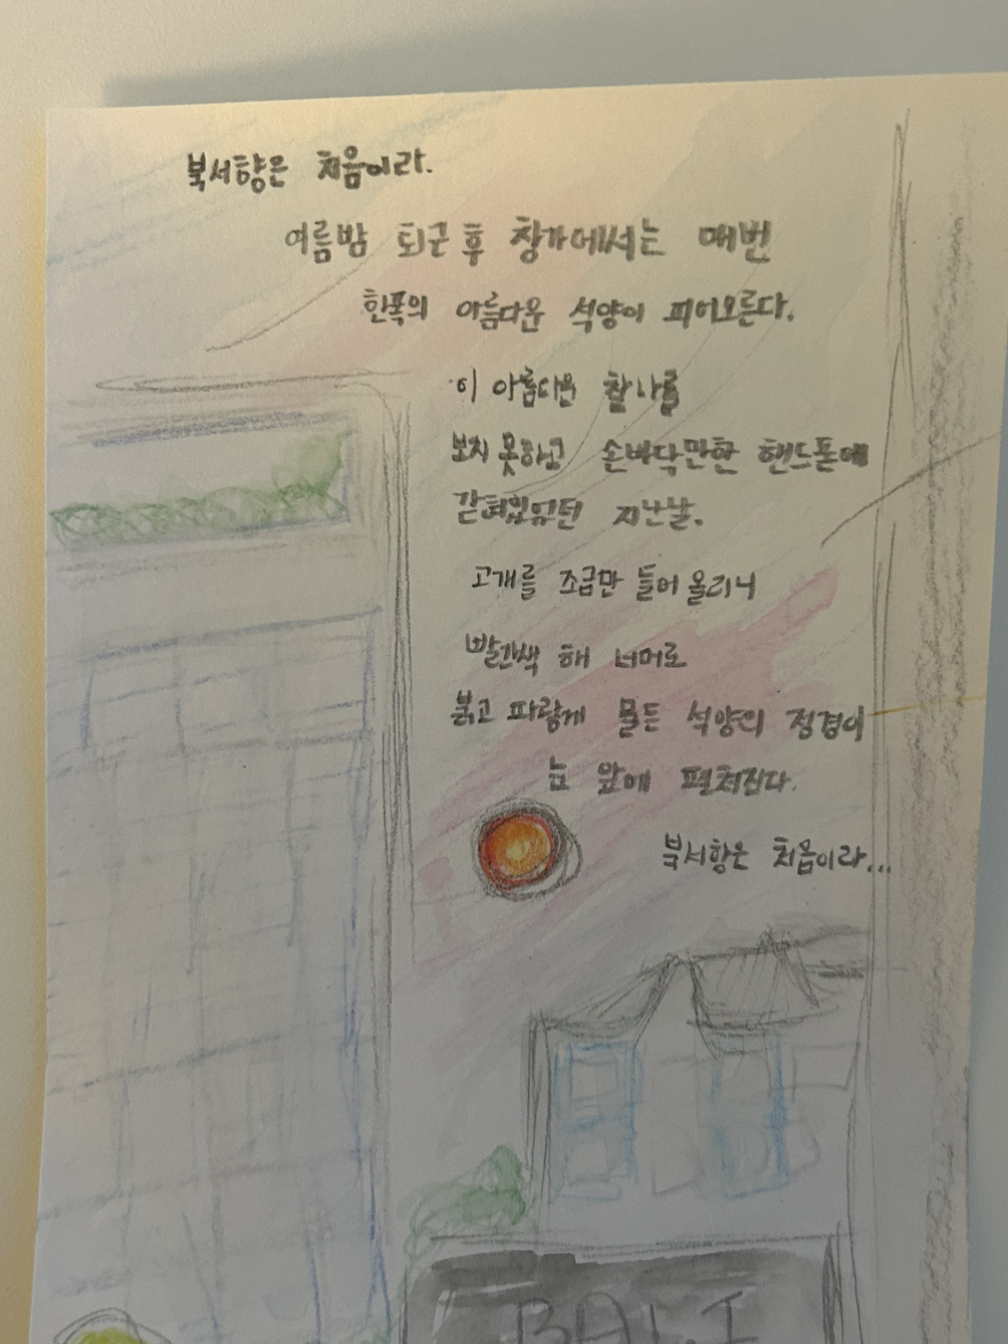 북서향은 처음이라.
여름밤 퇴근 후 창가에서는 매번
한폭의 아름다운 석양이 피어오른다.
이 아름다운 찰나를
보지 못하고 손바닥만한 핸드폰에
갇혀있었던 지난날.
고개를 조금만 들어 올리니
빨간색 해 너머로
붉고 파랗게 물든 석양의 정경이
눈 앞에 펼쳐진다.
북서향은 처음이라...
BALI